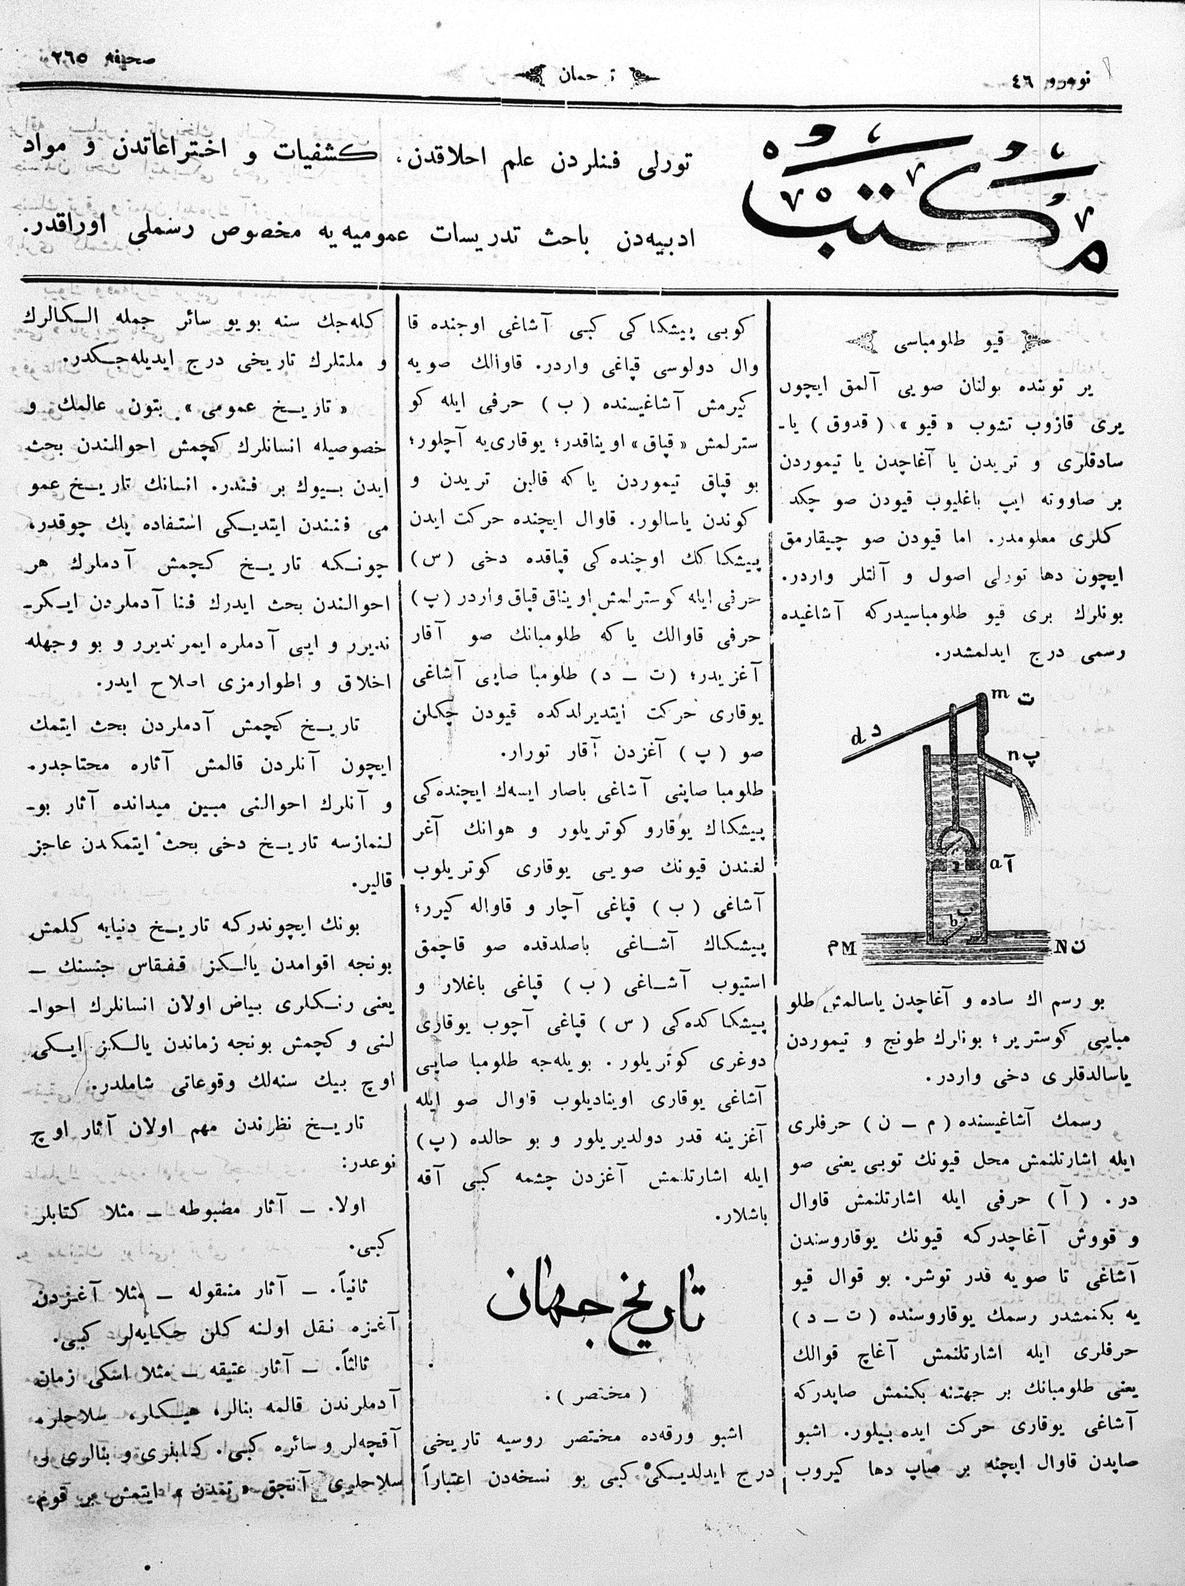 نومرو ٤٦
ترجمان
صحیفه ٢٦٥
مكتب
تورلی فنلردن علم اخلاقدن، كشفیات و اختراعاتدن و مواد
ادبیه‌دن باحث تدریسات عمومیه‌یه مخصوص رسملی اوراقدر.
قیو طلومباسی
یر توبنده بولنان صویی آلمق ایچون
یری قازوب تشوب «قیو» (قدوق) یا‍ـ
سادقلری و تریدن یا آغاچدن یا تیموردن
بر صاووته ایپ باغلیوب قیودن صو چكد
كلری معلومدر. اما قیودن صو چیقارمق
ایچون دها تورلی اصول و آلتلر واردر.
بونلرك بری قیو طلومباسیدركه آشاغیده
رسمی درج ایدلمشدر.
m ت
d د
n پ
a آ
b ب
م M
N ن
بو رسم اك ساده و آغاچدن یاسالمش طلو
مبایی كوستریر؛ بونلرك طونج و تیموردن
یاسالدقلری دخی واردر.
رسمك آشاغیسنده (م ــ ن) حرفلری
ایله اشارتلنمش محل قیونك توبی یعنی صو
در. (آ) حرفی ایله اشارتلنمش قاوال
و قووش آغاچدركه قیونك یوقاروسندن
آشاغی تا صویه قدر توشر. بو قوال قیو
یه بكنمشدر رسمك یوقاروسنده (ت ــ د)
حرفلری ایله اشارتلنمش آغاچ قوالك
یعنی طلومبانك بر جهتنه بكنمش صاپدركه
آشاغی یوقاری حركت ایده بیلور. اشبو
صاپدن قاوال ایچنه بر صاپ دها كیروب
كوبی پیشكاكی كبی آشاغی اوجنده قا
وال دولوسی قپاغی واردر. قاوالك صویه
كیرمش آشاغیسنده (ب) حرفی ایله كو
سترلمش «قپاق» اویناقدر؛ یوقاری‌یه آچلور؛
بو قپاق تیموردن یاكه قالین تریدن و
كوندن یاسالور. قاوال ایچنده حركت ایدن
پیشكاكك اوجنده‌كی قپاقده دخی (س)
حرفی ایله كوسترلمش اویناق قپاق واردر (پ)
حرفی قاوالك یاكه طلومبانك صو آقار
آغزیدر؛ (ت ــ د) طلومبا صاپی آشاغی
یوقاری حركت ایتدیرلدكده قیودن چكلن
صو (پ) آغزدن آقار تورار.
طلومبا صاپنی آشاغی باصار ایسه‌ك ایچنده‌كی
پیشكاك یوقارو كوتریلور و هوانك آغر
لغندن قیونك صویی یوقاری كوتریلوب
آشاغی (ب) قپاغی آچار و قاواله كیرر؛
پیشكاك آشاغی باصلدقده صو قاچمق
استیوب آشاغی (ب) قپاغی باغلار و
پیشكاكده‌كی (س) قپاغی آچوب یوقاری
دوغری كوتریلور. بویله‌جه طلومبا صاپی
آشاغی یوقاری اوینادیلوب قاوال صو ایله
آغزینه قدر دولدیریلور و بو حالده (پ)
ایله اشارتلنمش آغزدن چشمه كبی آقه
باشلار.
تاریخ جهان
(مختصر)
اشبو ورقه‌ده مختصر روسیه تاریخی
درج ایدلدیسكی كبی بو نسخه‌دن اعتباراً
كله‌جك سنه بویو سائر جمله الكالرك
و ملتلرك تاریخی درج ایدیله‌جكدر.
«تاریخ عمومی» بتون عالمك و
خصوصیله انسانلرك كچمش احوالندن بحث
ایدن بیوك بر فندر. انسانك تاریخ عمو
می فنندن ایتدیكی استفاده پك چوقدر،
چونكه تاریخ كچمش آدملرك هر
احوالندن بحث ایدرك فنا آدملردن ایكر‍ـ
ندیرر و ایی آدملره ایمرندیرر و بو وجهله
اخلاق و اطوارمزی اصلاح ایدر.
تاریخ كچمش آدملردن بحث ایتمك
ایچون آنلردن قالمش آثاره محتاجدر.
و آنلرك احوالنی مبین میدانده آثار بو‍ـ
لنمازسه تاریخ دخی بحث ایتمكدن عاجز
قالیر.
بونك ایچوندركه تاریخ دنیایه كلمش
بونجه اقوامدن یالكز قفقاس جنسنك ــ
یعنی رنكلری بیاض اولان انسانلرك احوا‍ـ
لنی و كچمش بونجه زماندن یالكز ایكی
اوچ بیك سنه‌لك وقوعاتی شاملدر.
تاریخ نظرندن مهم اولان آثار اوچ
نوعدر:
اولا. ــ آثار مضبوطه ــ مثلا كتابلر
كبی.
ثانیاً. ــ آثار منقوله ــ مثلا آغزدن
آغزه نقل اولنه كلن حكایه‌لر كبی.
ثالثاً. ــ آثار عتیقه ــ مثلا اسكی زمان
آدملرندن قالمه بنالر، هیكلر، سلاحلر،
آقچه‌لر و سائره كبی. كتابلری و بنالری لی
سلاحلری آنجق «تمدن» ایتمش بر قوم